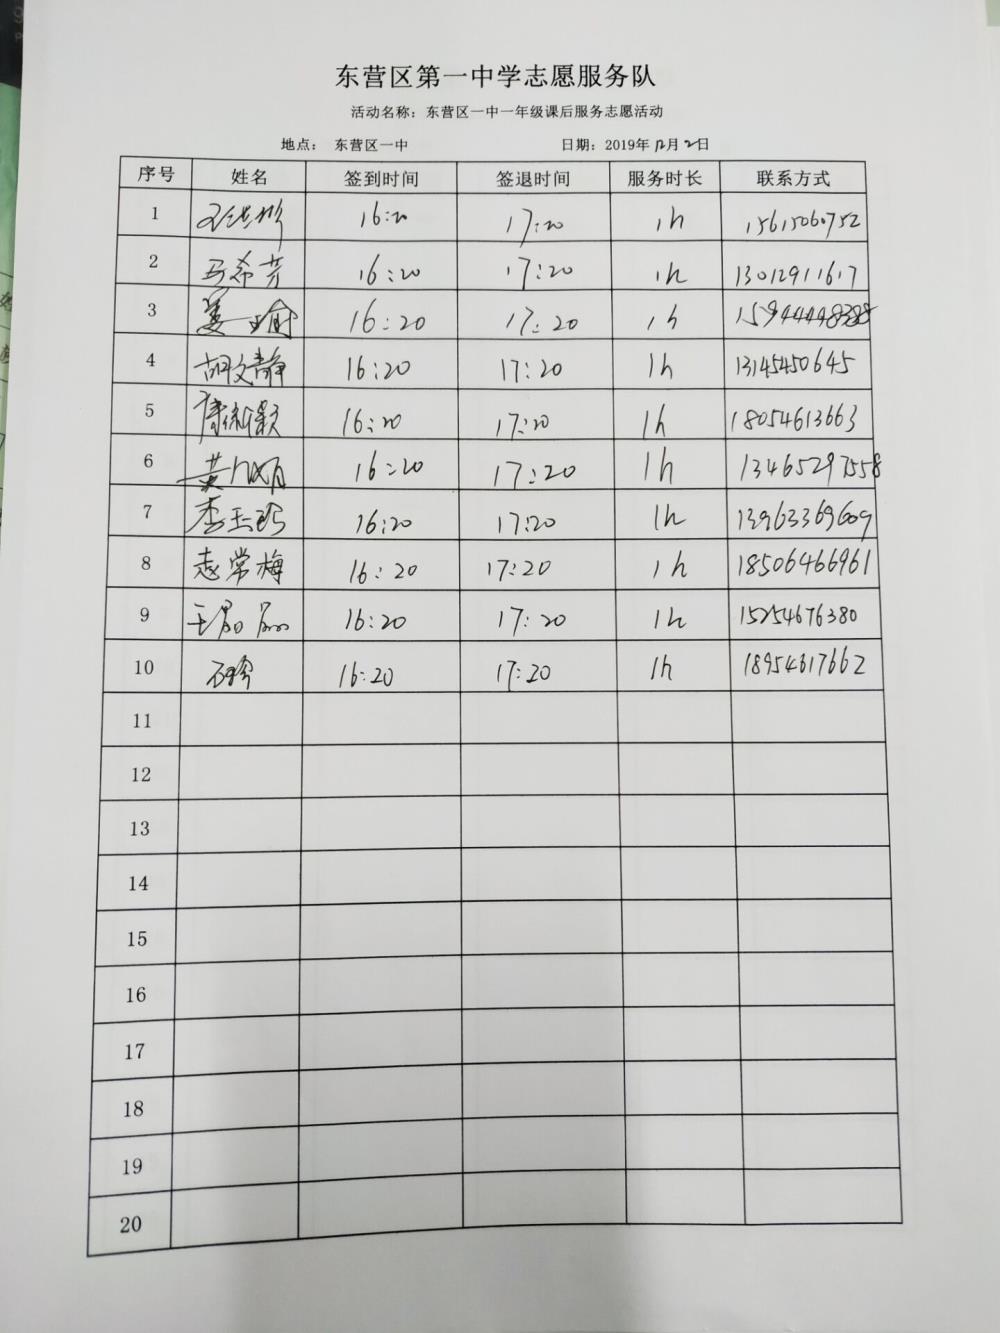 东营区第一中学志愿服务队
活动名称：东营区一中一年级课后服务志愿活动
地点： 东营区一中 日期：2019年12月2日
序号 姓名 签到时间 签退时间 服务时长 联系方式
1 16:20 17:20 1h 15615060752
2 马希芳 16:20 17:20 1h 13012911617
3 姜 16:20 17:20 1h
4 胡文静 16:20 17:20 1h 13145450645
5 16:20 17:20 1h 18054613663
6 黄 16:20 17:20 1h 13465297558
7 李玉 16:20 17:20 1h 13963369609
8 赵常梅 16:20 17:20 1h 18506466961
9 王 16:20 17:20 1h 15254676380
10 16:20 17:20 1h 18954617662
11
12
13
14
15
16
17
18
19
20